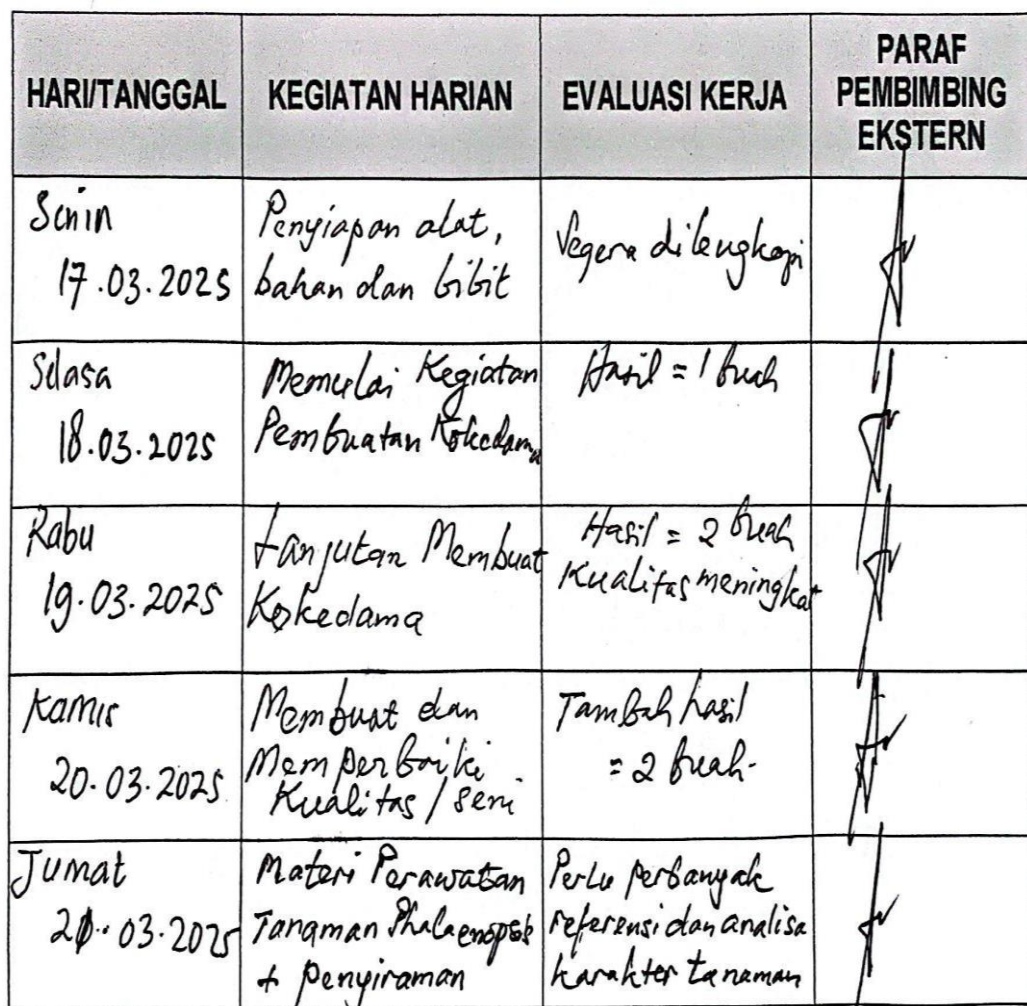 HARI/TANGGAL
KEGIATAN HARIAN
EVALUASI KERJA
PARAF
PEMBIMBING
EKSTERN
Senin
17.03.2025
Penyiapan alat,
bahan dan bibit
Segera dilengkapi
Selasa
18.03.2025
Memulai Kegiatan
Pembuatan Kokedama
Hasil = 1 buah
Rabu
19.03.2025
Lanjutan Membuat
Kokedama
Hasil = 2 buah
Kualitas meningkat
Kamis
20.03.2025
Membuat dan
Memperbaiki
Kualitas / seni
Tambah hasil
= 2 buah.
Jumat
21.03.2025
Materi Perawatan
Tanaman Phalaenopsis
+ Penyiraman
Perlu perbanyak
referensi dan analisa
karakter tanaman